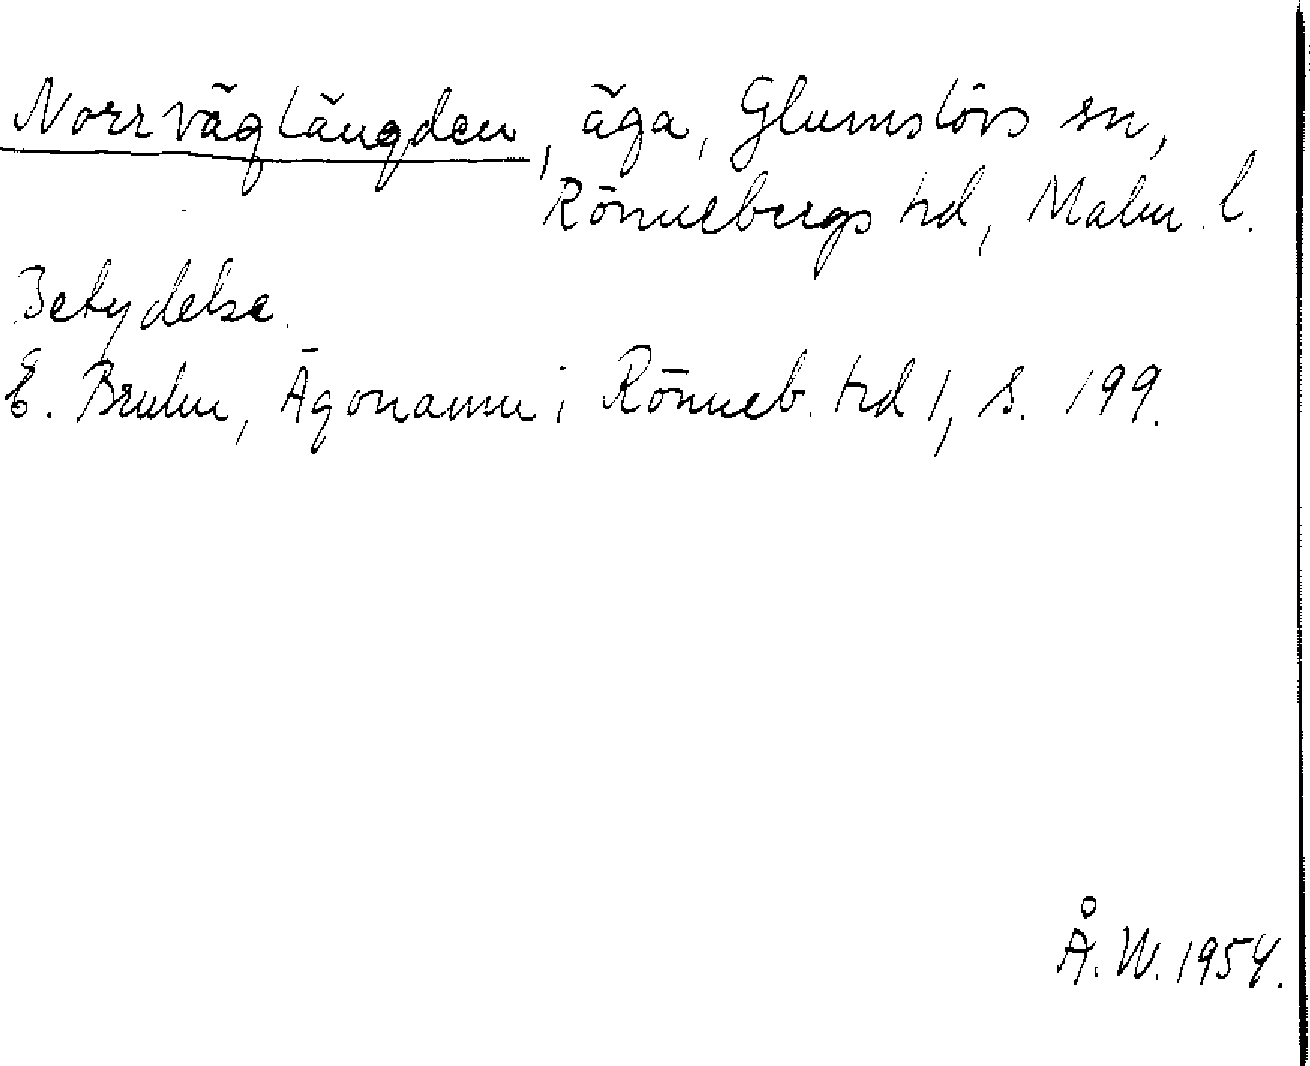 Norrväglängden, äga, Glumslövs sn,
Rönnebergs hd, Malm. l.
Betydelse.
E. Bruhn, Ägonamn i Rönneb. hd 1, s. 199.
Å. W. 1954.